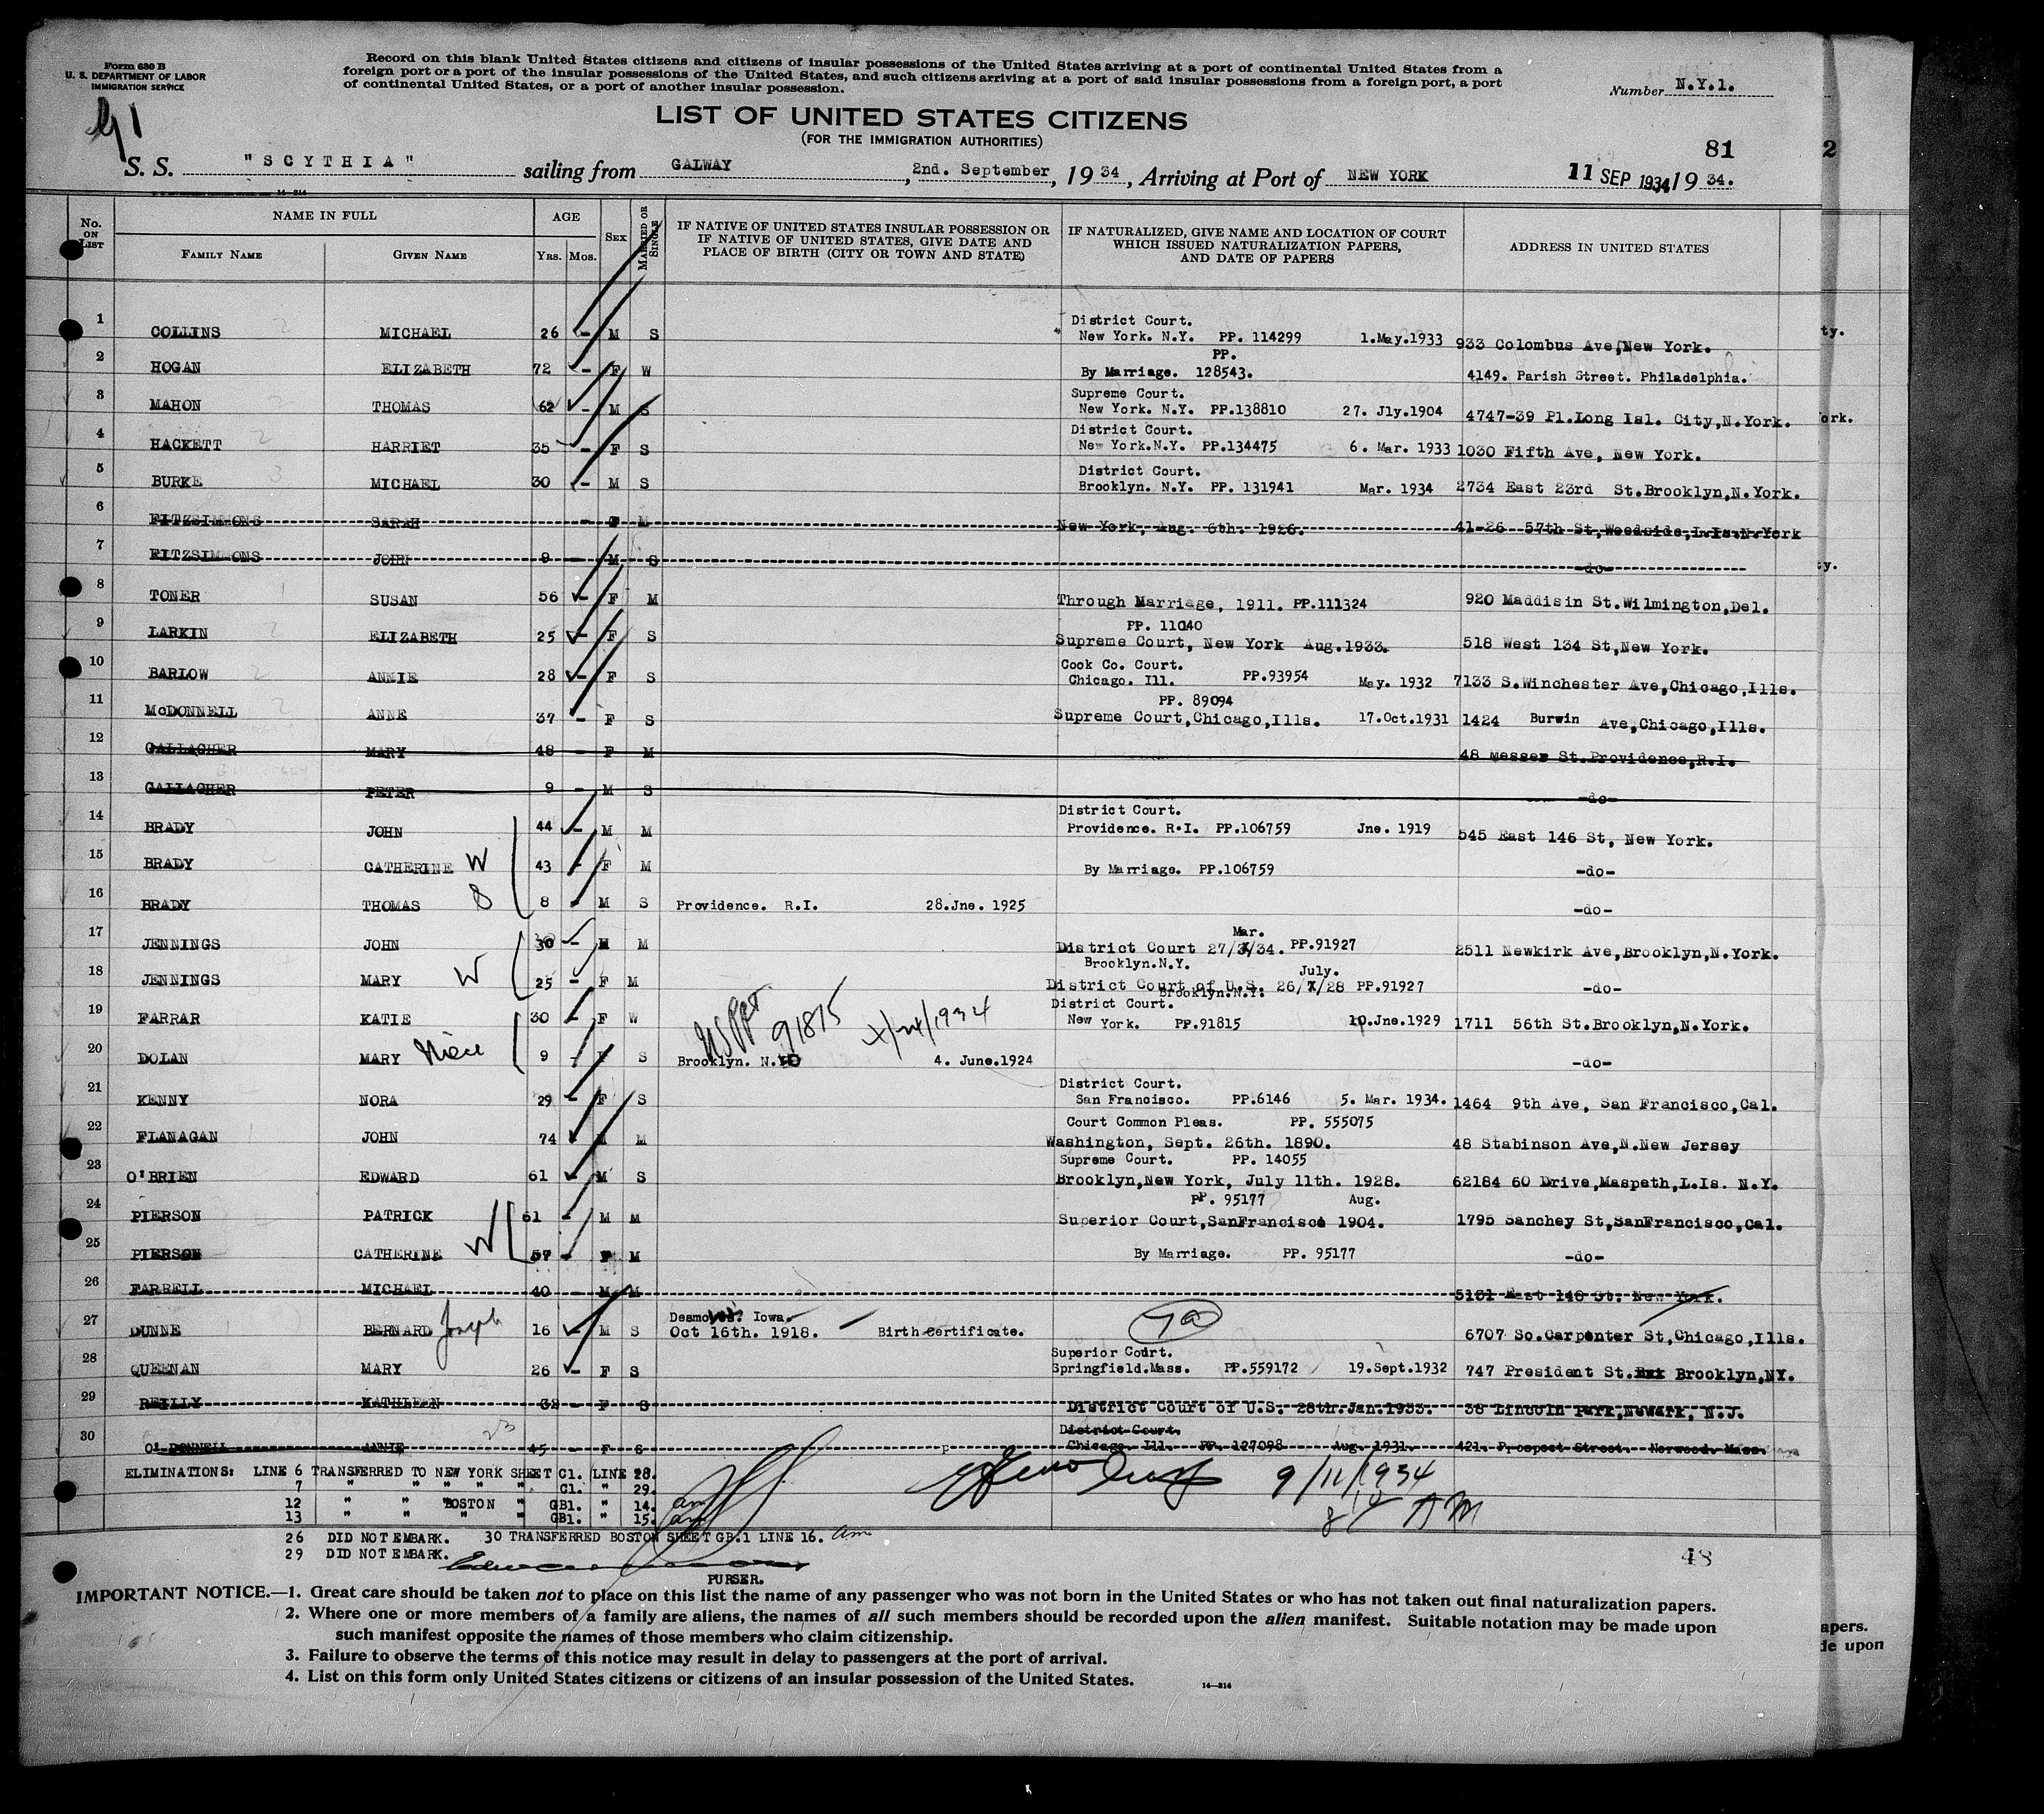 Form 630 B
U. S. DEPARTMENT OF LABOR
IMMIGRATION SERVICE
Record on this blank United States citizens and citizens of insular possessions of the United States arriving at a port of continental United States from a
foreign port or a port of the insular possessions of the United States, and such citizens arriving at a port of said insular possessions from a foreign port, a port
of continental United States, or a port of another insular possession.
Number N.Y.1.
LIST OF UNITED STATES CITIZENS
(FOR THE IMMIGRATION AUTHORITIES)
81
2
S. S. "SCYTHIA" sailing from GALWAY, 2nd. September, 1934, Arriving at Port of NEW YORK 11 SEP 1934 1934.
14-214
No. ON LIST
NAME IN FULL
FAMILY NAME
GIVEN NAME
AGE
YRS. MOS.
SEX
MARRIED OR SINGLE
IF NATIVE OF UNITED STATES INSULAR POSSESSION OR
IF NATIVE OF UNITED STATES, GIVE DATE AND
PLACE OF BIRTH (CITY OR TOWN AND STATE)
IF NATURALIZED, GIVE NAME AND LOCATION OF COURT
WHICH ISSUED NATURALIZATION PAPERS,
AND DATE OF PAPERS
ADDRESS IN UNITED STATES
District Court.
1 COLLINS MICHAEL 26 - M S New York. N.Y. PP. 114299 1.May.1933 933 Colombus Ave, New York.
PP.
2 HOGAN ELIZABETH 72 - F W By Marriage. 128543. 4149. Parish Street. Philadelphia.
Supreme Court.
3 MAHON THOMAS 62 - M S New York. N.Y. PP.138810 27. Jly.1904 4747-39 Pl.Long Isl. City,N.York.
District Court.
4 HACKETT HARRIET 35 - F S New York.N.Y. PP.134475 6. Mar. 1933 1030 Fifth Ave, New York.
District Court.
5 BURKE MICHAEL 30 - M S Brooklyn. N.Y. PP. 131941 Mar. 1934 2734 East 23rd St.Brooklyn,N.York.
6 FITZSIMMONS SARAH - F M New York, Aug. 6th. 1926. 41-26 57th St,Woodside,L.Is.N.York
7 FITZSIMMONS JOHN 9 - M S -do-
8 TONER SUSAN 56 - F M Through Marriage, 1911. PP.111324 920 Maddisin St.Wilmington,Del.
PP. 11040
9 LARKIN ELIZABETH 25 - F S Supreme Court, New York Aug.1933. 518 West 134 St,New York.
Cook Co. Court.
10 BARLOW ANNIE 28 - F S Chicago. Ill. PP.93954 May. 1932 7133 S.Winchester Ave,Chicago,Ills.
PP. 89094
11 McDONNELL ANNE 37 - F S Supreme Court,Chicago,Ills. 17.Oct.1931 1424 Burwin Ave,Chicago,Ills.
12 GALLAGHER MARY 48 - F M 48 Messer St.Providence,R.I.
13 GALLAGHER PETER 9 - M S -do-
District Court.
14 BRADY JOHN 44 - M M Providence. R.I. PP.106759 Jne. 1919 545 East 146 St, New York.
15 BRADY CATHERINE W 43 - F M By Marriage. PP.106759 -do-
16 BRADY THOMAS S 8 - M S Providence. R.I. 28.Jne. 1925 -do-
Mar.
17 JENNINGS JOHN 30 - M M District Court 27/3/34. PP.91927 2511 Newkirk Ave,Brooklyn,N.York.
Brooklyn.N.Y. July.
18 JENNINGS MARY W 25 - F M District Court of U.S. 26/7/28 PP.91927 -do-
Brooklyn.N.Y.
District Court.
19 FARRAR KATIE 30 - F W New York. PP.91815 10.Jne.1929 1711 56th St.Brooklyn,N.York.
USPPT 91815 x/24/1934
20 DOLAN MARY Niece 9 - F S Brooklyn. N.Y. 4. June.1924 -do-
District Court.
21 KENNY NORA 29 - F S San Francisco. PP.6146 5. Mar. 1934. 1464 9th Ave, San Francisco,Cal.
Court Common Pleas. PP. 555075
22 FLANAGAN JOHN 74 - M M Washington, Sept. 26th. 1890. 48 Stabinson Ave,N.New Jersey
Supreme Court. PP. 14055
23 O'BRIEN EDWARD 61 - M S Brooklyn,New York, July 11th. 1928. 62184 60 Drive,Maspeth,L.Is. N.Y.
PP. 95177 Aug.
24 PIERSON PATRICK 61 - M M Superior Court,SanFrancisco 1904. 1795 Sanchey St,SanFrancisco,Cal.
25 PIERSON CATHERINE W 57 - F M By Marriage. PP. 95177 -do-
26 FARRELL MICHAEL 40 - M M 5131 East 148 St. New York.
Desmoines. Iowa.
27 DUNNE BERNARD Joseph 16 - M S Oct 16th. 1918. Birth Certificate. 6707 So.Carpenter St,Chicago,Ills.
Superior Court.
28 QUEENAN MARY 26 - F S Springfield.Mass. PP.559172 19.Sept.1932 747 President St. Brooklyn,NY.
29 REILLY KATHLEEN 32 - F S District Court of U.S. 28th.Jan.1933. 38 Lincoln Park,Newark, N.J.
District Court.
30 O'DONNELL ANNIE 45 - F S Chicago. Ill. PP. 127098 Aug. 1931. 421. Prospect Street. Norwood. Mass.
ELIMINATIONS: LINE 6 TRANSFERRED TO NEW YORK SHEET C1. LINE 28.
7 " " " " " C1. " 29.
12 " " BOSTON " GB1. " 14. am
13 " " " " GB1. " 15. am
9/11/1934
AM
26 DID NOT EMBARK. 30 TRANSFERRED BOSTON SHEET GB.1 LINE 16. am
29 DID NOT EMBARK.
PURSER.
48
IMPORTANT NOTICE.—1. Great care should be taken not to place on this list the name of any passenger who was not born in the United States or who has not taken out final naturalization papers.
2. Where one or more members of a family are aliens, the names of all such members should be recorded upon the alien manifest. Suitable notation may be made upon
such manifest opposite the names of those members who claim citizenship.
3. Failure to observe the terms of this notice may result in delay to passengers at the port of arrival.
4. List on this form only United States citizens or citizens of an insular possession of the United States.
14-214